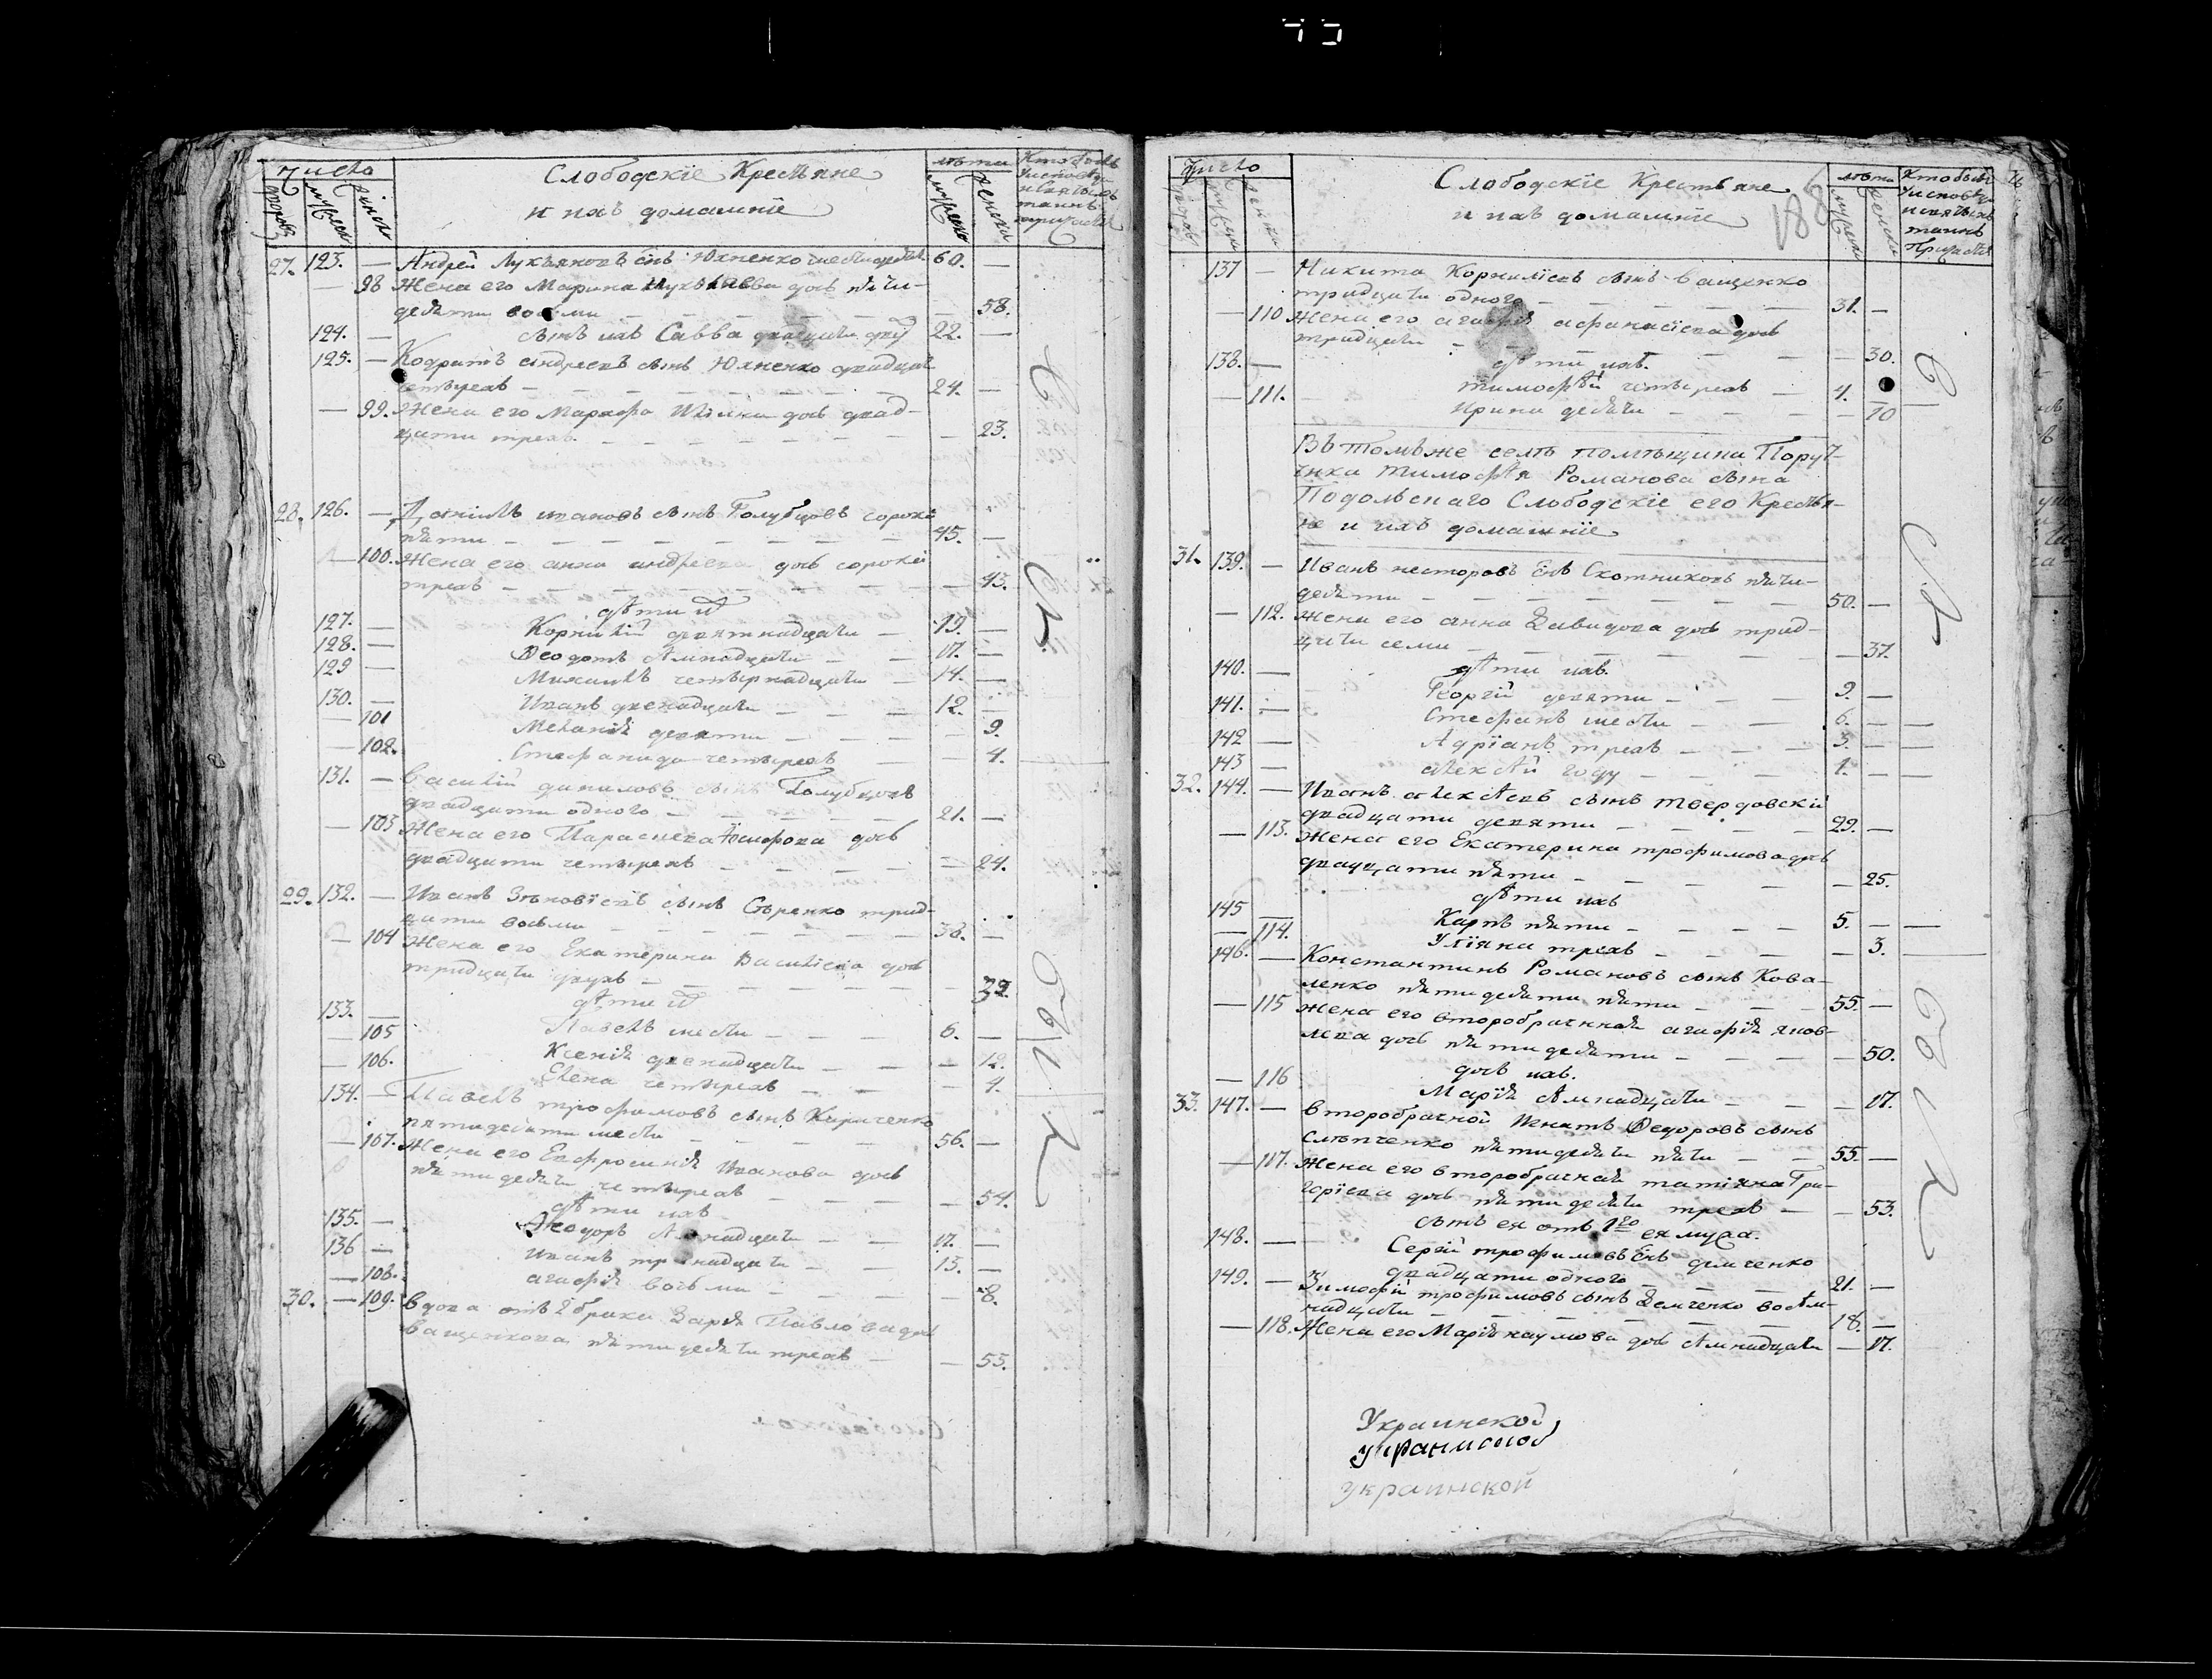 число
дворовъ мужеск женск
Слободскіе Крестьяне
и ихъ домашніе
лѣта
мужеска женска
Кто былъ
у исповѣди
и святыхъ
таинъ
причастія
27. 123. — Андрей Лукьяновъ снъ Юхненко шестидесяти 60. —
— 98 Жена его Марина дочь пяти-
десяти восьми — 58.
124. — сынъ ихъ Савва двадцати двухъ 22. —
125. — Кодратъ андреевъ сынъ Юхненко двадцати
четырехъ — 24. —
— 99. Жена его Марфа дочь двад-
цати трехъ — 23.
28. 126. — Даніилъ ивановъ сынъ Голубцовъ сорока
пяти — 45. —
— 100. Жена его анна андреева дочь сорока
трехъ — 43.
дѣти ихъ
127. — Корнилій девятнадцати — 19. —
128. — Ѳеодотъ семнадцати — 17. —
129 — Михаилъ четырнадцати — 14. —
130. — Иванъ двенадцати — 12. —
— 101 Меланія девяти — 9.
— 102. Стефанида четырехъ — 4.
131. — Василій даниловъ сынъ Голубцовъ
двадцати одного — 21. —
— 103 Жена его Параскева Іосифова дочь
двадцати четырехъ — 24.
29. 132. — Иванъ Зѣновіевъ сынъ Сѣренко трид-
цати восьми — 38. —
— 104 Жена его Екатерина Василіева дочь
тридцати двухъ — 32.
дѣти ихъ
133. — Павелъ шести — 6. —
— 105 Ксенія двенадцати — 12.
— 106. Елена четырехъ — 4.
134. — Павелъ трофимовъ сынъ Кириченко
пятидесяти шести — 56. —
— 107. Жена его Евфросинія Иванова дочь
пятидесяти четырехъ — 54.
дѣти ихъ
135. — Ѳеодоръ семнадцати — 17. —
136 — иванъ тринадцати — 13. —
— 108. агафія восьми — 8.
30. — 109. вдова отъ 2 брака Дарія Павлова дочь
ващенкова пятидесяти трехъ — 53.
Число
Слободскіе Крестьяне
и ихъ домашніе
188
лѣта
Кто былъ
у исповѣди
и святыхъ
таинъ
Причастія
137 — Никита Корниліевъ сынъ ващенко
тридцати одного — 31. —
— 110 Жена его агафія афанасіева дочь
тридцати — 30.
138. — дѣти ихъ.
тимофѣй четырехъ — 4.
— 111. Ирина десяти — 10
Въ томъ же селѣ помѣщика Поручи-
чика Тимофѣя Романова сына
Подольскаго Слободскіе его Крестья-
не и ихъ домашніе
31. 139. — Иванъ несторовъ снъ Скотниковъ пяти-
десяти — 50. —
— 112. Жена его анна Давидова дочь трид-
цати семи — 37.
140. — дѣти ихъ.
Георгій девяти — 9. —
141. — Стефанъ шести — 6. —
142 — Адріанъ трехъ — 3. —
143 — алексѣй году — 1. —
32. 144. — Иванъ алексѣевъ сынъ твердовскій
двадцати девяти — 29. —
— 113. Жена его Екатерина трофимова дочь
двадцати пяти — 25.
дѣти ихъ
145 Карпъ пяти — 5. —
— 114. Уліяна трехъ — 3.
146. — Константинъ Романовъ сынъ Кова-
ленко пятидесяти пяти — 55. —
— 115 Жена его второбрачная агафія яков-
лева дочь пятидесяти — 50.
дочь ихъ.
— 116 Марія семнадцати — 17.
33. 147. — второбрачной Игнатъ Ѳедоровъ сынъ
слѣпченко пятидесяти пяти — 55. —
— 117. Жена его второбрачная татіяна Гри-
горіева дочь пятидесяти трехъ — 53.
сынъ ея отъ 1го ея мужа.
148. — Сергій трофимовъ снъ демченко
двадцати одного — 21. —
149. — Тимофѣй трофимовъ сынъ Демченко восѣм-
надцати — 18. —
— 118. Жена его Марія наумова дочь семнадцати — 17.
Украинской
украинской
украинской